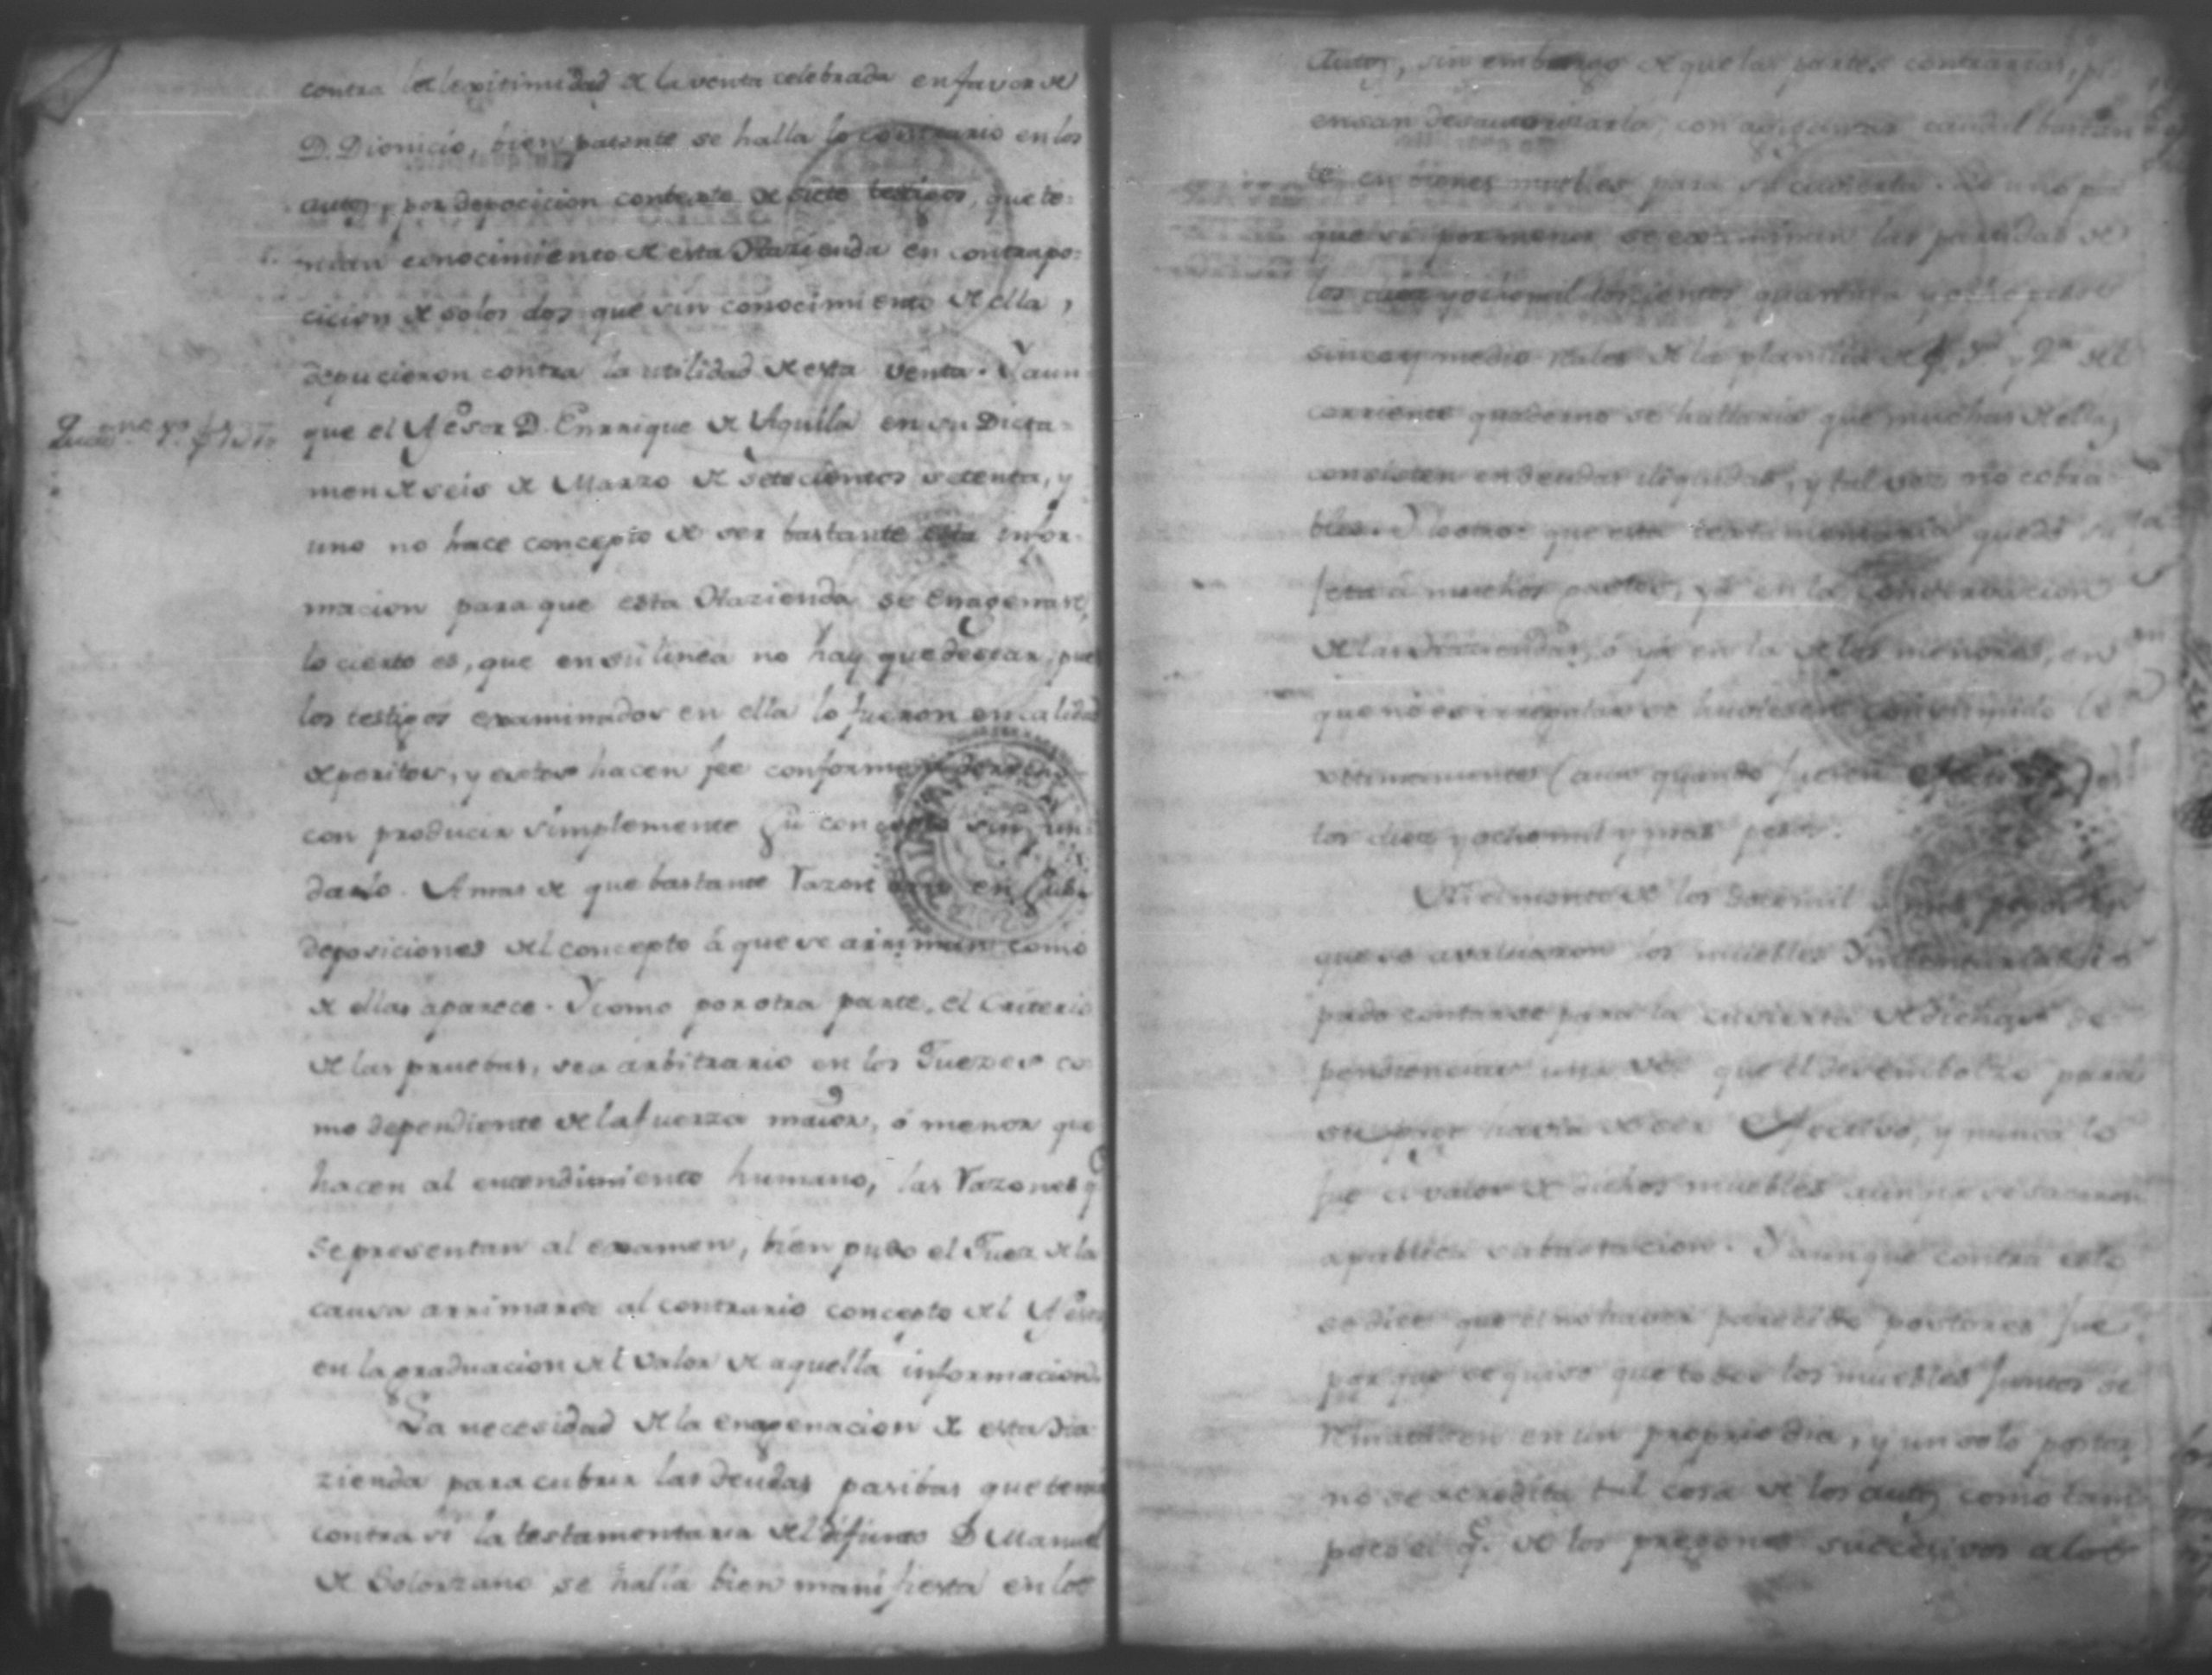 contra la legitimidad de la venta celebrada en favor de
D. Dionicio, bien patente se halla lo contrario en los
autos, por deposicion conteste de siete testigos, que te=
nian conocimiento de esta Hazienda en contrapo=
cicion de solos dos que sin conocimiento de ella,
depucieron contra la utilidad de esta venta. Y aun
que el Asesor D. Enrrique de Aguila en su Dicta=
men de seis de Marzo de setecientos setenta, y
uno no hace concepto de ser bastante esta infor-
macion para que esta Hazienda se enagenase,
lo cierto es, que en su linea no hay que desear, pues
los testigos examinados en ella lo fueron en calidad
de peritos, y estos hacen fee conforme a derecho
con producir simplemente su concepto sin fun-
darlo. A mas de que bastante razon dan en sus
deposiciones del concepto á que se arriman como
de ellas aparece. Y como por otra parte, el Criterio
de las pruebas, sea arbitrario en los Juezes co
mo dependiente de la fuerza maior, ó menor que
hacen al entendimiento humano, las razones q
se presentan al examen, bien pudo el Juez de la
causa arrimarse al contrario concepto del Asesor
en la graduacion del valor de aquella informacion.
La necesidad de la enagenacion de esta Ha
zienda para cubrir las deudas pasibas que tenia
contra si la testamentaria del difunto D Manuel
de Solorzano se halla bien manifiesta en los
autos, sin embargo de que las partes contrarias, pi
ensan desautorizarla, con caudal bastan
te en bienes muebles para su cubierta. Lo uno por
que si por menor se examinan las partidas de
los diez y ocho mil doscientos quarenta y ocho pesos
sinco y medio reales de la planilla de f. y 2a del
corriente quaderno se hallaria que muchas de ellas
consisten en deudas iliquidas, y tal vez no cobra
bles. Y lo otro que esta testamentaria quedó su
jeta á muchos gastos, ya en la conservacion
de las Haziendas, ó ya en la de los menores, en
que no es irregular se huviesen consumido le
gitimamente (aun quando fuesen efectivos)
los diez y ocho mil y mas pesos.
Ni el monto de los doce mil y mas pesos en
que se avaluaron los muebles
pudo contarse para la cuvierta de dichas de
pendencias una vez que el desembolzo para
su pago havia de ser efectivo, y nunca lo
fue el valor de dichos muebles aunque se sacaron
a publica subastacion. Y aunque contra esto
se dice que el no haver parecido postores fue
por que se quiso que todos los muebles juntos se
rematasen en un proprio dia, y un solo postor
no se acredita tal cosa de los autos como tam
poco el q. de los pregones succesivos a los